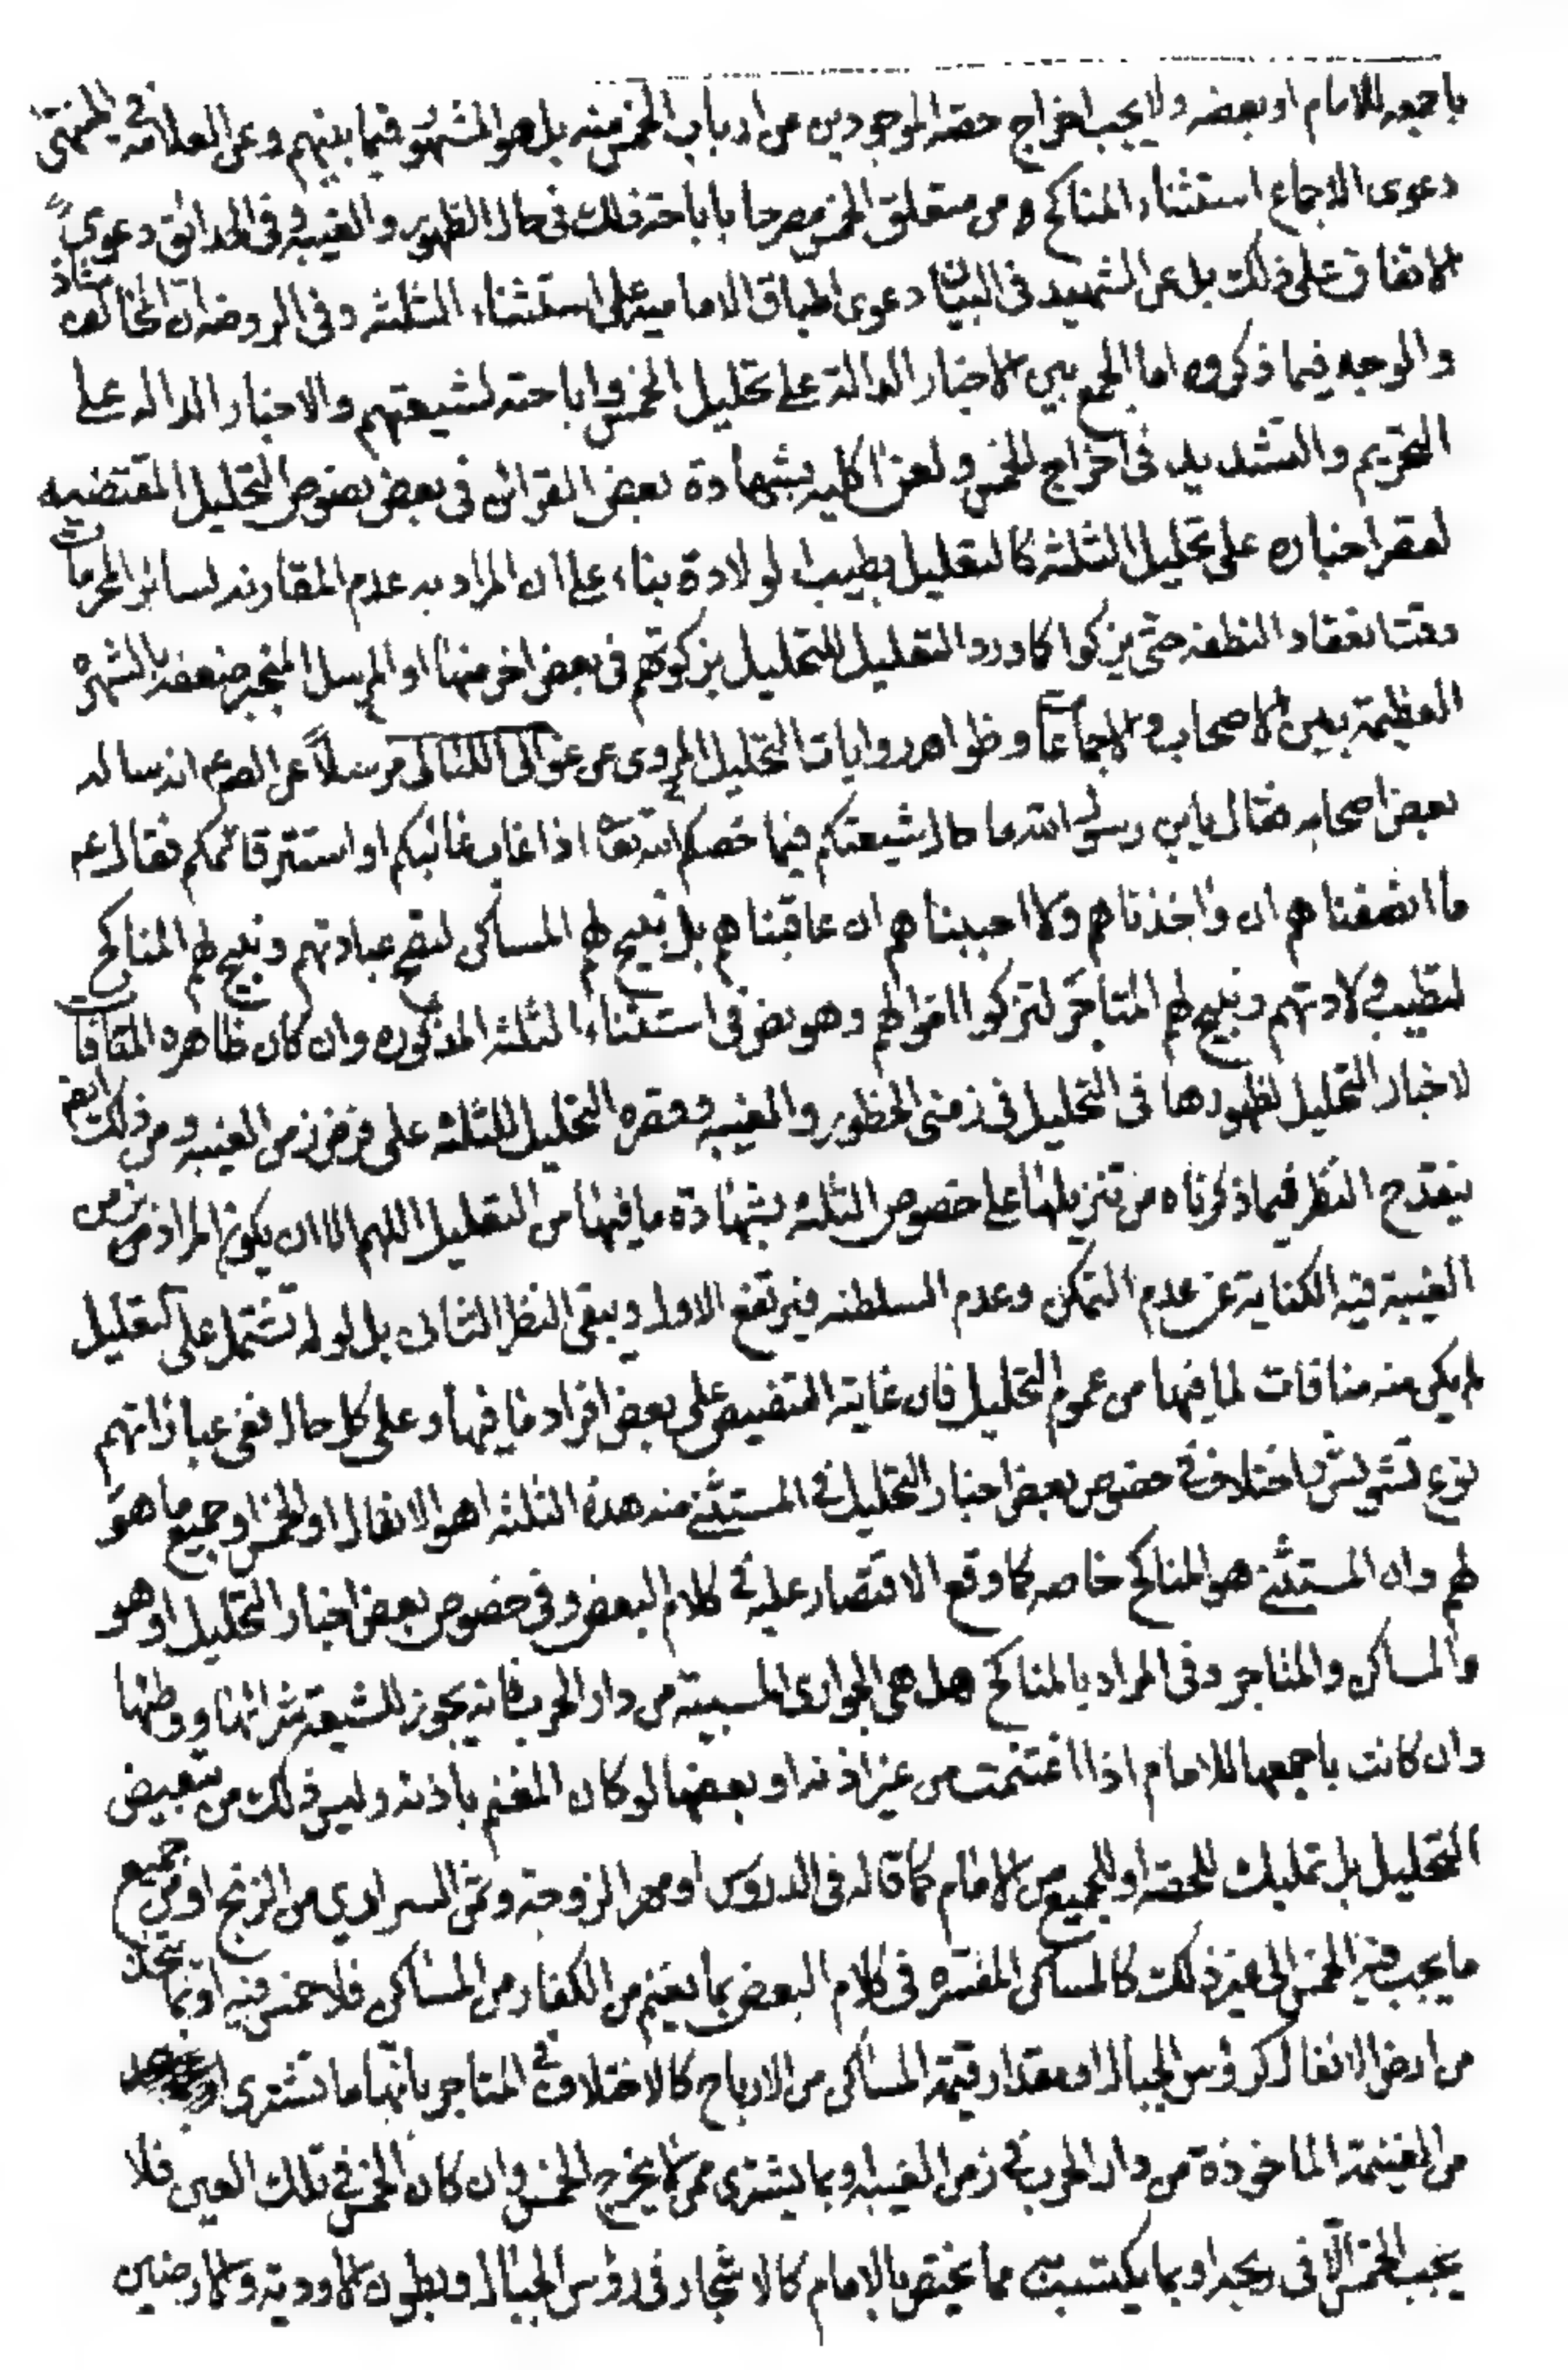 باجمعه للامام او بعضه ولا يجب اخراج حصة الموجودين من ارباب الخمس منه بل هو المشهور فيما بينهم وعن العلامة في المنتهى
دعوى الاجماع استثناء المناكح من متعلق الخمس مصرحا باباحة ذلك في حال الظهور والغيبة وفي الحدائق دعوى
الاتفاق على ذلك بل عن الشهيد في البيان دعوى اطباق الامامية على استثناء الثلثة وفي الروضة ان المخالف شاذ
والوجه فيما ذكروه اما الجمع بين الاخبار الدالة على تحليل الخمس واباحته لشيعتهم والاخبار الداله على
التحريم والتشديد في اخراج الخمس بشهادة بعض القرائن في بعض نصوص التحليل المقتضيه
لقصر اخباره على تحليل الثلثة كالتعليل بطيب الولادة بناء على ان المراد به عدم المقارنة لسائر المحرمات
وقت انعقاد النطفه حتى يزكوا كما ورد التعليل للتحليل بزكوتهم في بعض اخر منها او المرسل المنجبر ضعفه بالشهرة
العظيمة بين الاصحاب والاجماعات وظواهر روايات التحليل المروي عن عوالي اللئالى مرسلاً عن الصم انه ساله
بعض اصحابه فقال يابن رسول الله ما حال شيعتكم فيما خصكم الله تعا اذا غاب غائبكم او استتر قائمكم فقال عه
ما انصفناهم ان واخذناهم ولا احببناهم ان عاقبناهم بل نبيح لهم المساكن لتصح عبادتهم ونبيح لهم المناكح
لتطيب ولادتهم ونبيح لهم المتاجر لتزكوا اموالهم وهو نص في استثناء الثلثة المذكوره وان كان ظاهره المنافات
لاخبار التحليل لظهورها في التحليل في زمني الحظور والغيبه وقصره التحليل للثلثه على فرض زمن الغيبه ومن ذلك انقدح
ينقدح النظر فيما ذكرناه من تنزيلها على خصوص الثلثه بشهادة ما فيها من التعليل اللهم الا ان يكون المراد من زمن
الغيبة فيه الكناية عن عدم التمكن وعدم السلطنه فيرتفع الاول ويبقى النظر الثاني بل لو لم تشتمل على التعليل
لم يكن منه منافات لما فيها من عموم التحليل فان غايته التنصيص على بعض افراد ما فيها وعلى كل حال ففي عباراتهم
نوع تشويش باختلاف في خصوص بعض اخبار التحليل في المستثنى منه هذه الثلثه اهو الانفال او الخمس او جميع ما هو
لهم وان المستثنى هو المناكح خاصه كما وقع الاقتصار عليه في كلام البعض وفي خصوص بعض اخبار التحليل او هو
والمساكن والمتاجر وفي المراد بالمناكح هل هي الجوارى المسبية من دار الحرب فانه يجوز للشيعة شرائها ووطئها
وان كانت باجمعها للامام اذا اغتنمت من غير اذنه او بعضها لو كان المغنم باذنه وليس ذلك من تبعيض
التحليل بل تمليك للحصة او للجميع من الامام كما قاله في الدروس او مهر الزوجة وثمن السراري من الربح او من جميع
ما يجب فيه الخمس الى غير ذلك كالمساكن المفسره في كلام البعض بما يغنم من الكفار من المساكن فلا خمس فيه او بما يتخذ
من ارض الانفال كرؤس الجبال او بمقدار قيمة المساكن من الارباح كالاختلاف في المتاجر بانها ما تشترى
من الغنيمة الماخوذة من دار الحرب في زمن الغيبه او بما يشترى ممن لا يخرج الخمس وان كان الخمس في تلك العين فلا
يجب الخمس الّا في ربحه او بما يكتسب مما يختص بالامام كالاشجار في رؤس الجبال وبطون الاودية والارضين